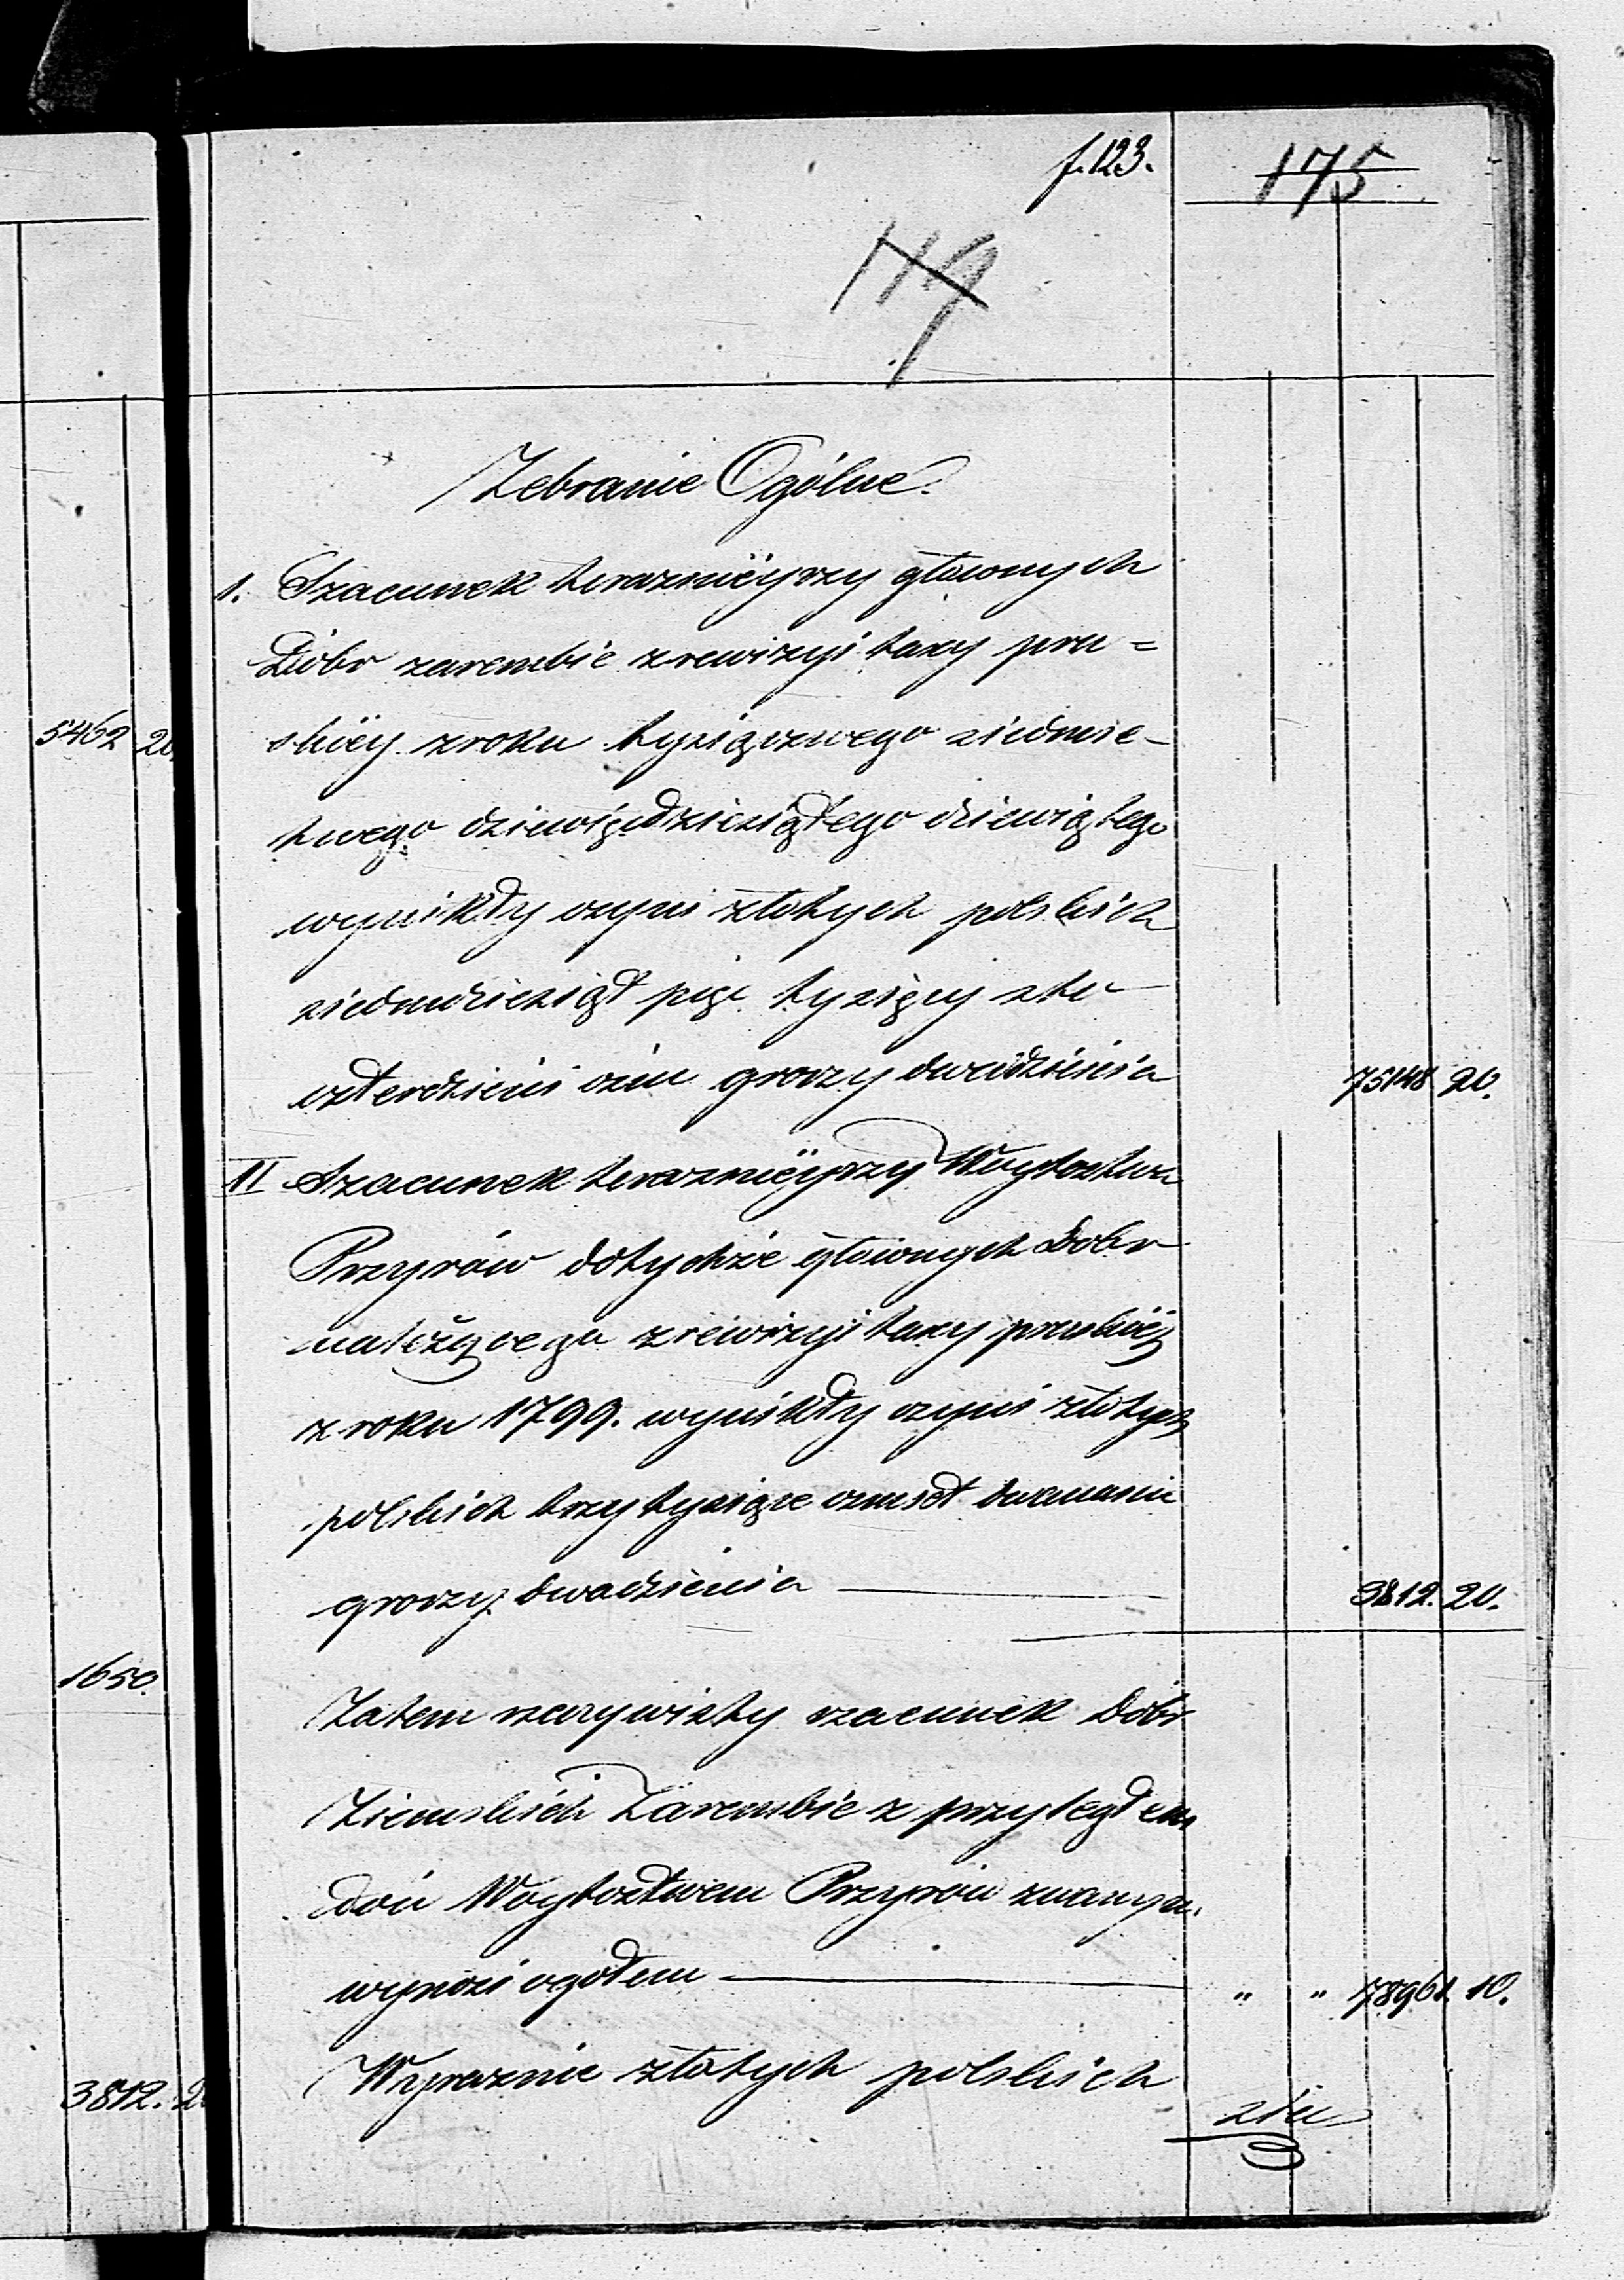 f. 123.
175
119
Zebranie Ogólne.
1. Szacunek terazniëyszy głownych
Dóbr zarembie z rewizyi taxy pru=
skiëy z roku tysiącznego siedmse-
tnego dziewiędziesiątego dziewiątego
wynikły czyni złotych polskich
siedmdziesiąt pięc tysięcy sto
czterdzieści ośm groszy dwadzieścia
75148 20.
II Szacunek terazniëyszy Woytostwa
Przyrów do tychże głownych Dobr
należącego z rewizyi taxy pruskiëy
z roku 1799. wynikły czyni złotych
polskich trzy tysiące ośmset dwanaście
groszy dwadzieścia
3812. 20.
Zatem rzeczywisty szacunek Dóbr
Ziemskich Zarembie z przyległem
doń Woytostwem Przyrów zwanym
wynosi ogółem " " 78961 10.
Wyraznie złotych polskich
sied
5462 20
1650.
3812. 2